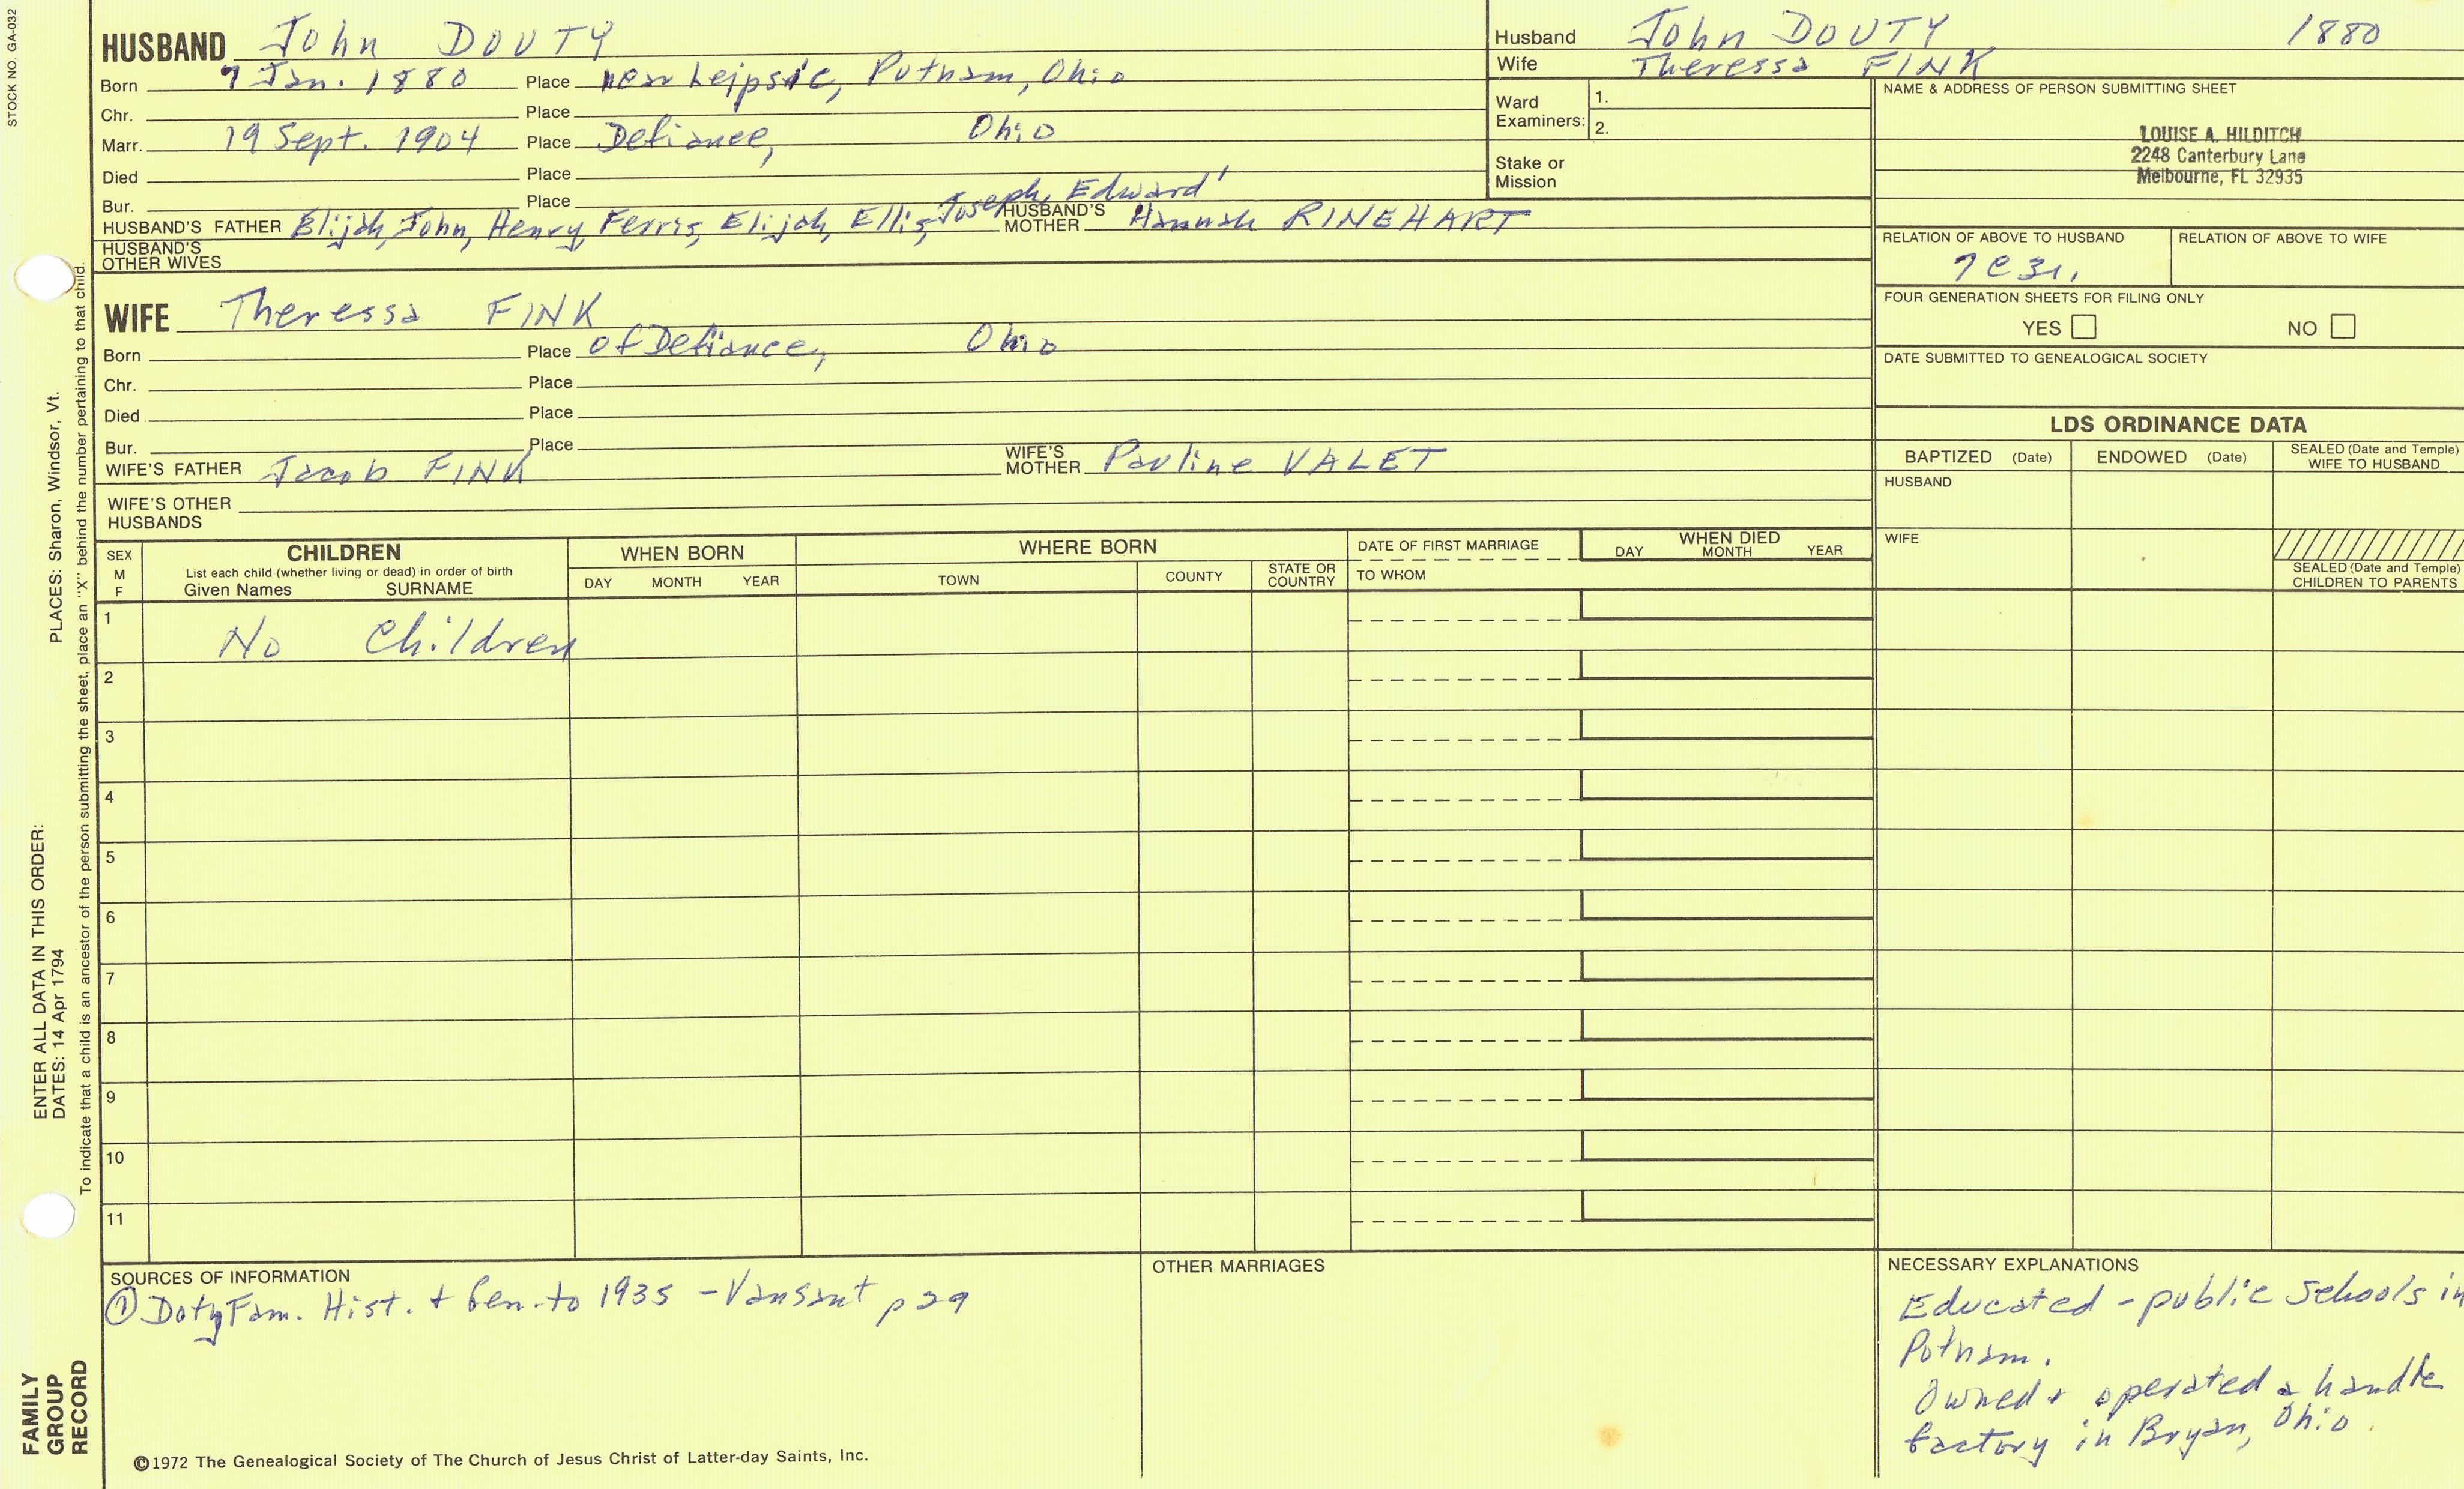 STOCK NO. GA-032
HUSBAND John DOUTY
Born 7 Jan. 1880 Place near Leipsic, Putnam, Ohio
Chr. Place
Marr. 19 Sept. 1904 Place Defiance, Ohio
Died Place
Bur. Place
Joseph, Edward'
HUSBAND'S FATHER Elijah, John, Henry, Ferris, Elijah, Ellis, HUSBAND'S MOTHER Hannah RINEHART
HUSBAND'S OTHER WIVES
Husband John DOUTY 1880
Wife Theressa FINK
Ward Examiners: 1.
2.
Stake or Mission
NAME & ADDRESS OF PERSON SUBMITTING SHEET
LOUISE A. HILDITCH
2248 Canterbury Lane
Melbourne, FL 32935
RELATION OF ABOVE TO HUSBAND RELATION OF ABOVE TO WIFE
7C3r.
FOUR GENERATION SHEETS FOR FILING ONLY
YES NO
DATE SUBMITTED TO GENEALOGICAL SOCIETY
WIFE Theressa FINK
Born Place of Defiance, Ohio
Chr. Place
Died Place
Bur. Place
WIFE'S FATHER Jacob FINK WIFE'S MOTHER Pauline VALET
WIFE'S OTHER HUSBANDS
LDS ORDINANCE DATA
BAPTIZED (Date) ENDOWED (Date) SEALED (Date and Temple) WIFE TO HUSBAND
HUSBAND
WIFE
SEALED (Date and Temple) CHILDREN TO PARENTS
SEX M F
CHILDREN
List each child (whether living or dead) in order of birth
Given Names SURNAME
WHEN BORN
DAY MONTH YEAR
WHERE BORN
TOWN COUNTY STATE OR COUNTRY
DATE OF FIRST MARRIAGE
TO WHOM
WHEN DIED
DAY MONTH YEAR
1 No Children
2
3
4
5
6
7
8
9
10
11
SOURCES OF INFORMATION
① Doty Fam. Hist. + Gen. to 1935 - Vansant p 29
OTHER MARRIAGES
NECESSARY EXPLANATIONS
Educated - public schools in
Putnam.
Owned + operated a handle
factory in Bryan, Ohio.
©1972 The Genealogical Society of The Church of Jesus Christ of Latter-day Saints, Inc.
ENTER ALL DATA IN THIS ORDER:
DATES: 14 Apr 1794 PLACES: Sharon, Windsor, Vt.
To indicate that a child is an ancestor of the person submitting the sheet, place an "X" behind the number pertaining to that child.
FAMILY
GROUP
RECORD